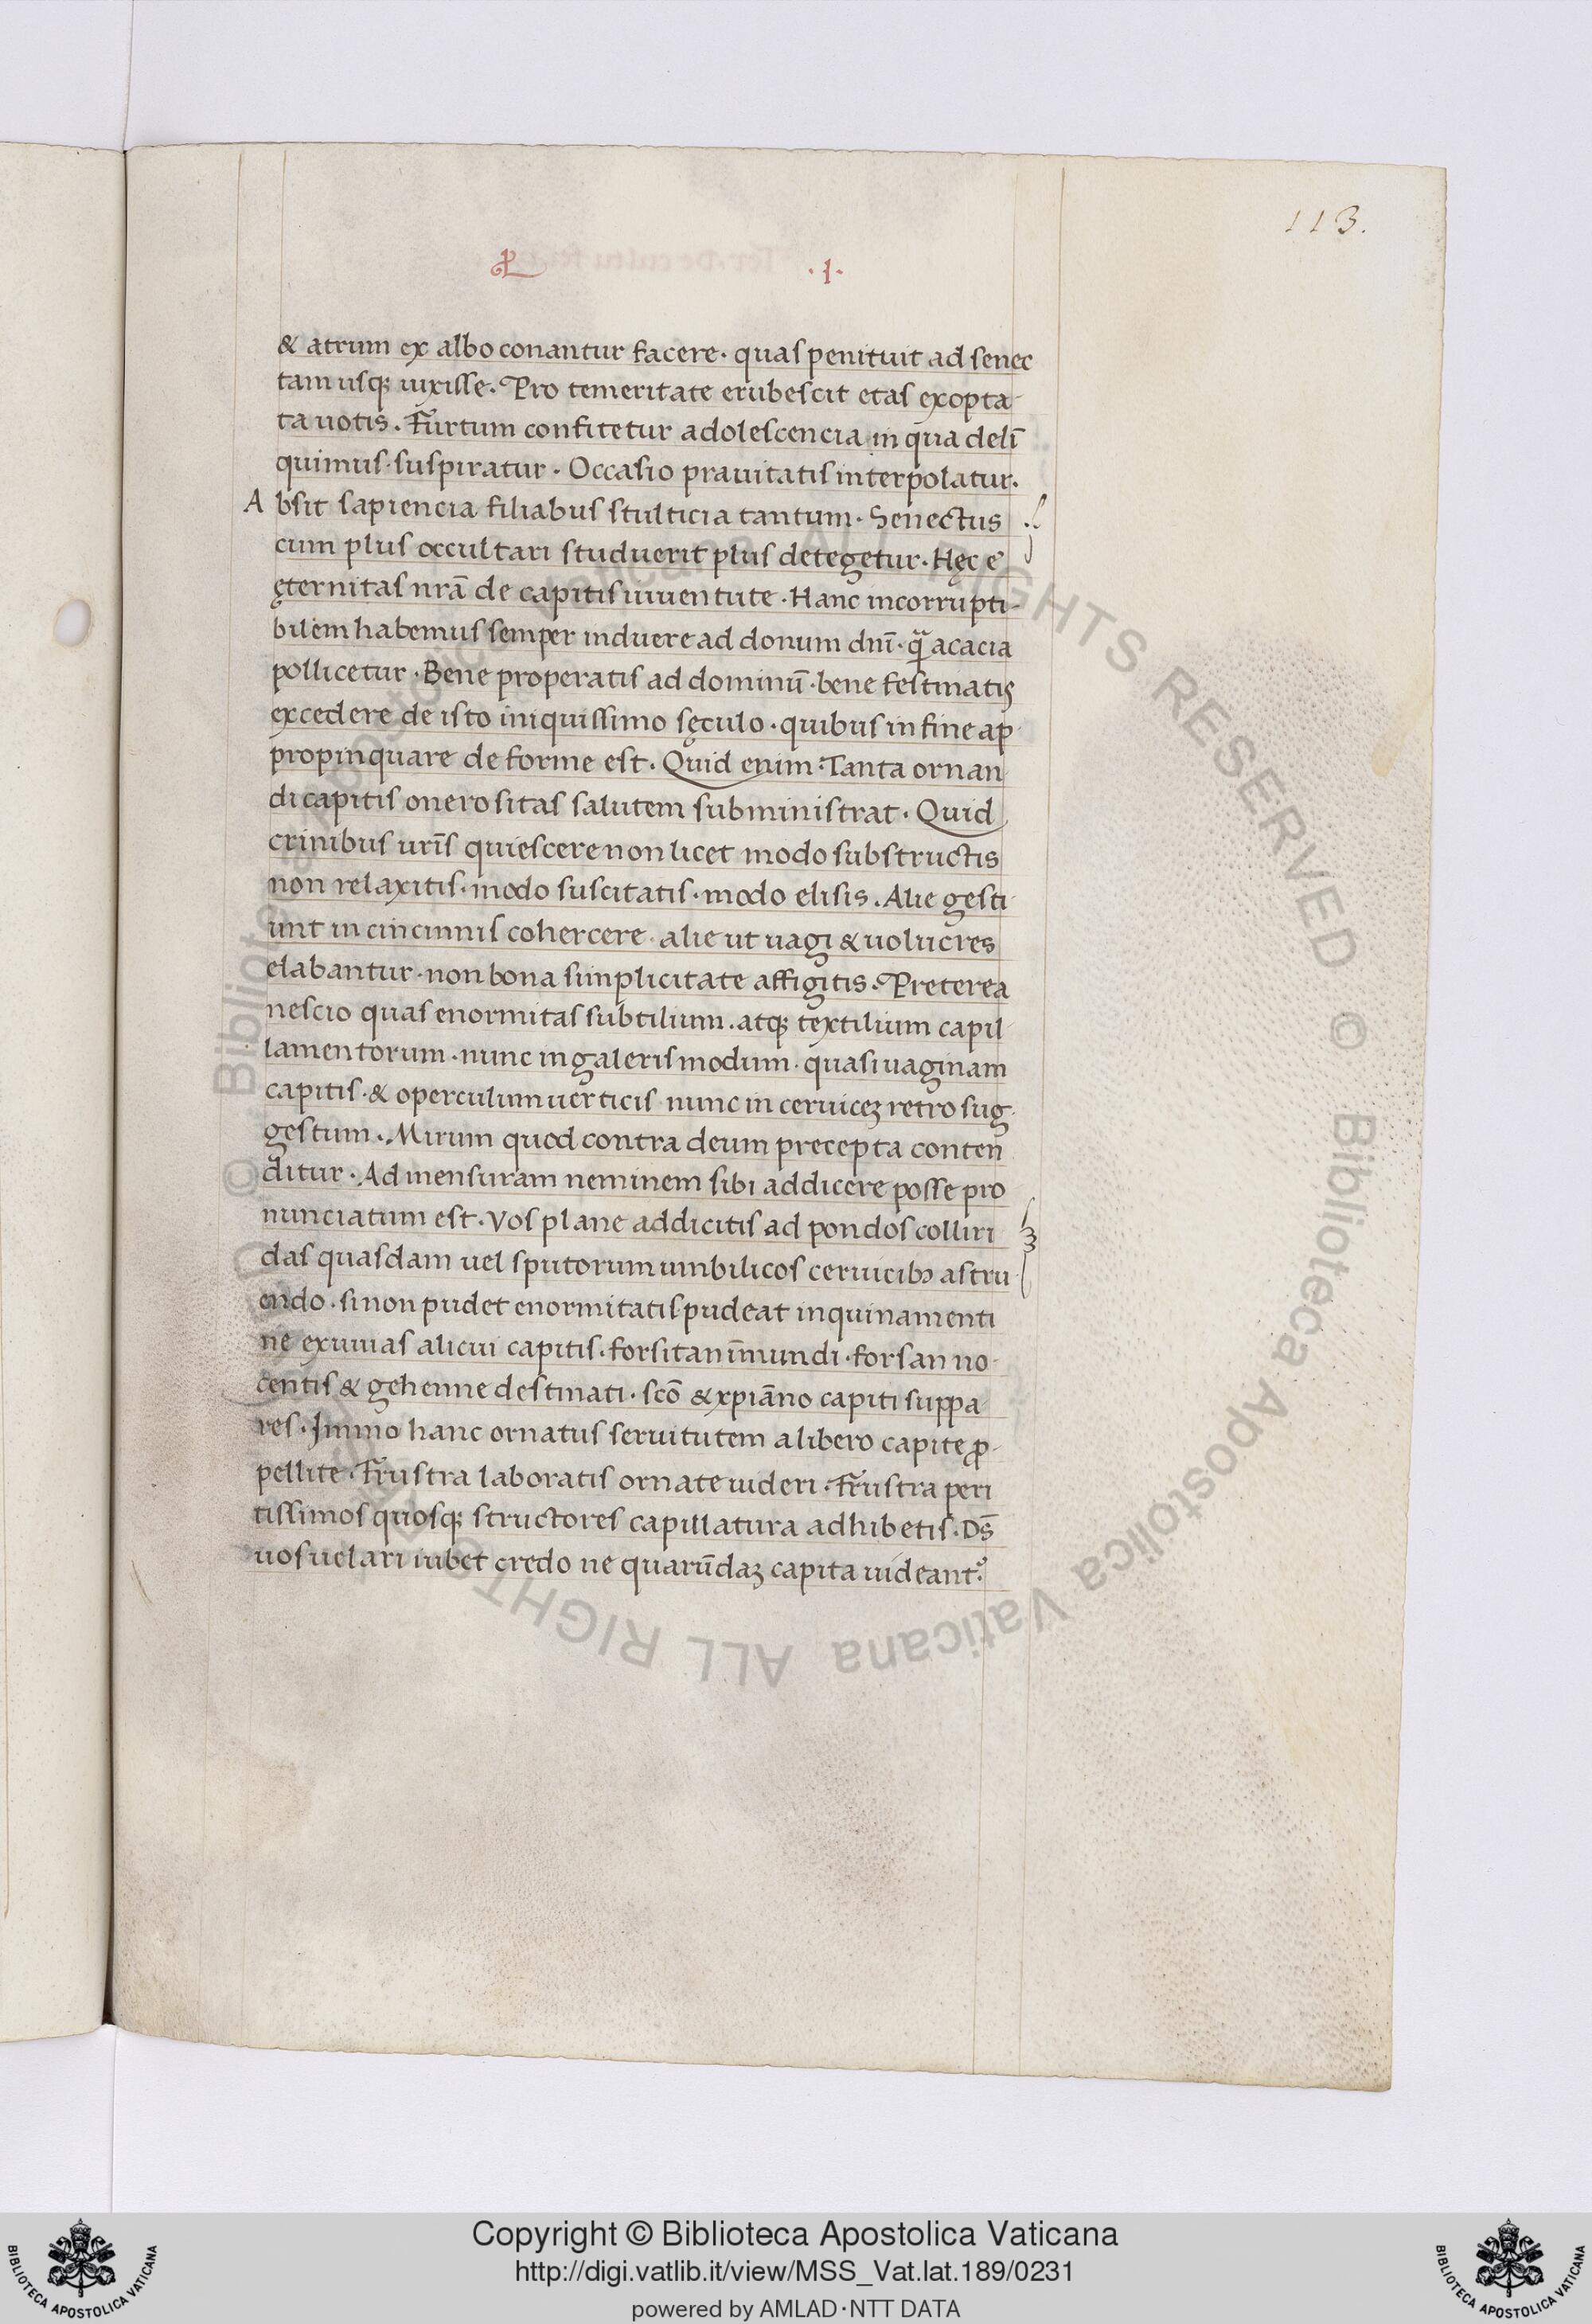 113.
PL .I.
& atrum ex albo conantur facere. quas penituit ad senec
tam usqꝫ uixisse. Pro temeritate erubescit etas exopta-
ta uotis. Furtum confitetur adolescencia in qua deli̅
quimus. suspiratur. Occasio prauitatis interpolatur.
Absit sapiencia filiabus stulticia tantum. Senectus
cum plus occultari studuerit plus detegetur. Hęc e̅
ęternitas nra̅ de capitis iuuentute. Hanc incorrupti-
bilem habemus semper induere ad donum dni̅. qᷓ acacia
pollicetur. Bene properatis ad dominu̅. bene festinatis
excedere de isto iniquissimo sęculo. quibus in fine ap
propinquare deforme est. Quid enim. Tanta ornan-
di capitis onerositas salutem subministrat. Quid
crinibus uri̅s quiescere non licet modo substructis
non relaxitis. modo suscitatis. modo elisis. Alie gesti
unt in cincinnis cohercere. alie ut uagi & uolucres
elabantur. non bona simplicitate affigitis. Preterea
nescio quas enormitas subtilium. atqꝫ textilium capil
lamentorum. nunc in galeris modum. quasi uaginam
capitis. & operculum uerticis nunc in ceruiceꝫ retro sug-
gestum. Mirum quod contra deum precepta conten
ditur. Ad mensuram neminem sibi addicere posse pro
nunciatum est. Vos plane addicitis ad pondos colliri
das quasdam uel sputorum umbilicos ceruicibꝫ astru
endo. si non pudet enormitatis pudeat inquinamenti
ne exuuias alicui capitis. forsitan i̅mundi. forsan no-
centis & gehenne destinati. sco̅ & xpia̅no capiti suppa
res. Immo hanc ornatus seruitutem a libero capite ꝓ-
pellite. Frustra laboratis ornate uideri. Frustra peri
tissimos quosqꝫ structores capillatura adhibetis. Ds̅
uos uelari iubet credo ne quaru̅daꝫ capita uideant.᾿
© Biblioteca Apostolica Vaticana ALL RIGHTS RESERVED © Biblioteca Apostolica Vaticana ALL RIGHTS
Copyright © Biblioteca Apostolica Vaticana
http://digi.vatlib.it/view/MSS_Vat.lat.189/0231
powered by AMLAD·NTT DATA
BIBLIOTECA APOSTOLICA VATICANA
BIBLIOTECA APOSTOLICA VATICANA